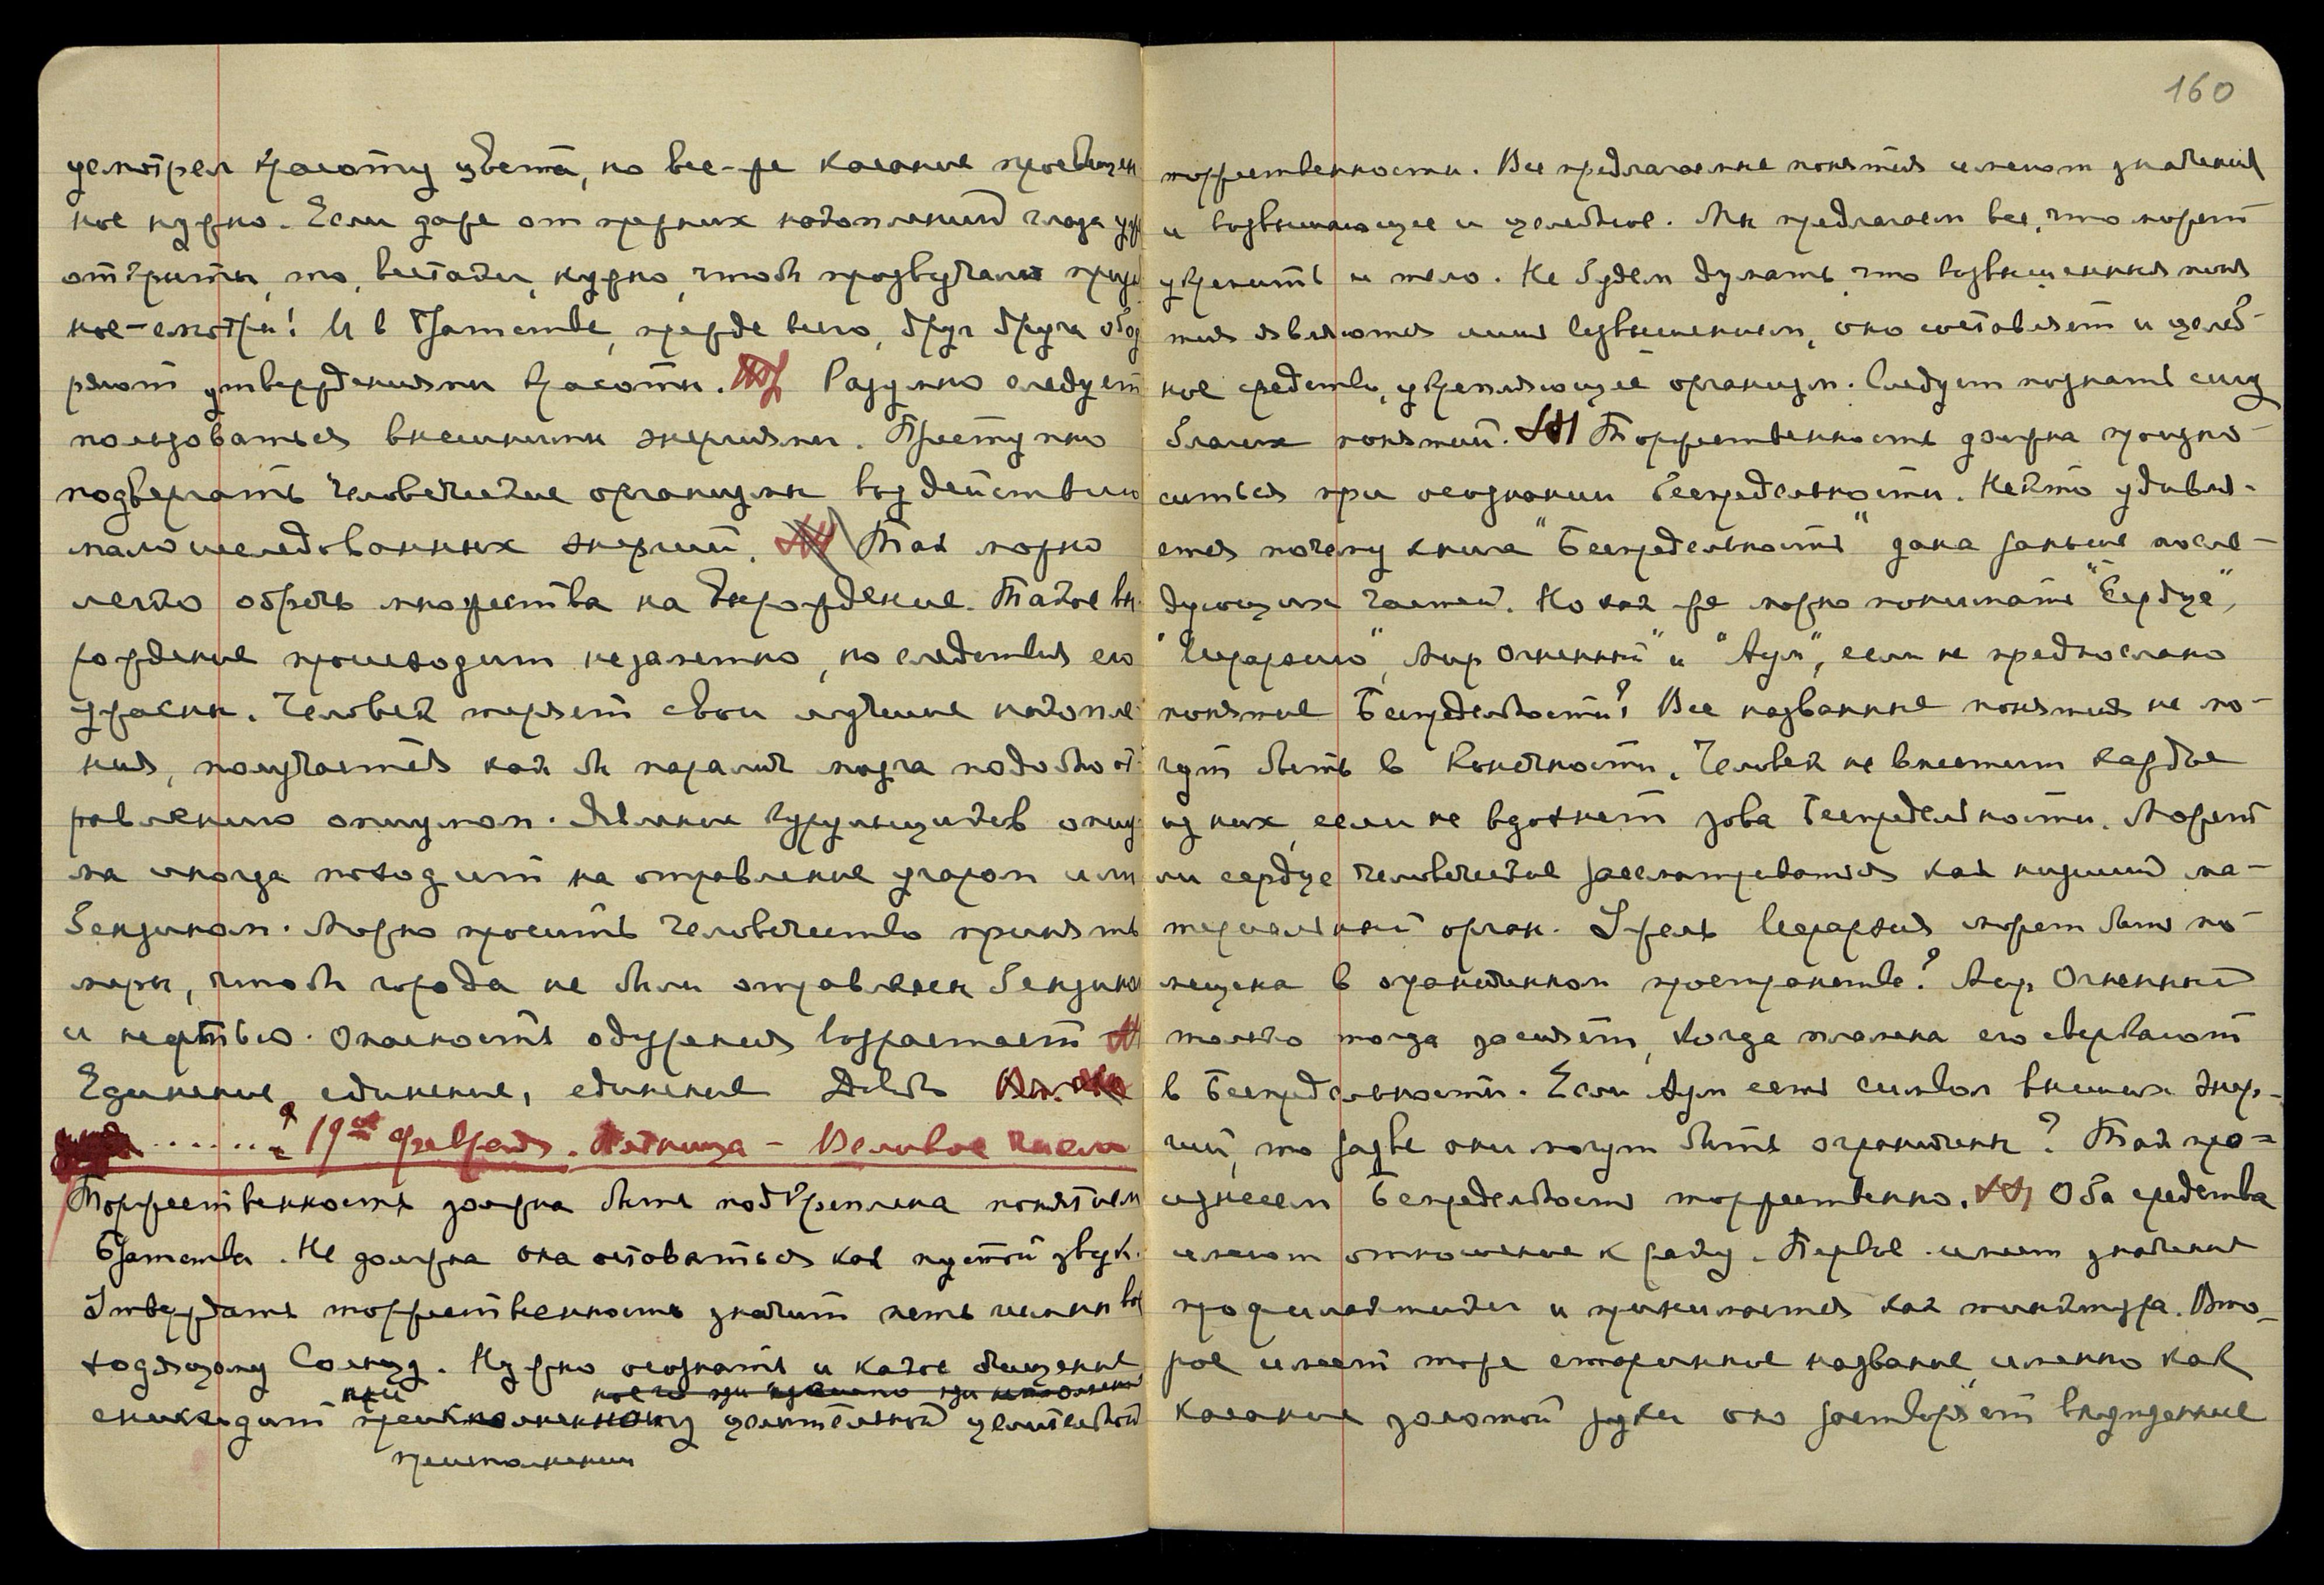 усмотрел красоту цвета, но все-же касание просвещен
ное нужно. Если даже от прежних накоплений глаза уже
открыты, то, все-таки, нужно, чтобы прозвучало призыв
ное-смотри! И в Братстве, прежде всего, друг друга обод
ряют утверждениями красоты. Разумно следует
пользоваться внешними энергиями. Преступно
подвергать человеческие организмы воздействию
мало исследованных энергий. Так можно
легко обречь множества на вырождение. Такое вы
рождение происходит незаметно, но следствия его
ужасны. Человек теряет свои лучшие накопле
ния, получается как бы паралич мозга подобно от
равлению опиумом. Явление курильщиков опиу
ма иногда походит на отравление угаром или
бензином. Можно просить человечество принять
меры, чтобы города не были отравлены бензином
и нефтью. Опасность одурения возрастает
Единение, единение, единение
19ое Февраля. Пятница – Великое Число
Торжественность должна быть подкреплена понятием
Братства. Не должна она оставаться как пустой звук.
Утверждать торжественность значит петь гимны вос
ходящему Солнцу. Нужно осознать и какое очищение
снисходит при целительной целительной
преисполнении
160
торжественности. Все предлагаемые понятия имеют значения
и возвышающее и целебное. Мы предлагаем все, что может
укрепить и тело. Не будем думать, что возвышенныя поня
тия являются лишь возвышением, оно составляет и целеб-
ное средство, укрепляющее организм. Следует познать силу
благих понятий. Торжественность должна произно-
ситься при осознании Беспредельности. Некто удивля-
ется почему книга "Беспредельность" дана раньше после-
дующих частей. Но как же можно понимать "Сердце",
"Иерархию", "Мир Огненный" и "Аум", если не предпослано
понятие Беспредельности? Все названные понятия не мо-
гут быть в Конечности. Человек не вместит каждое
из них, если не вдохнет зова Беспредельности. Может
ли сердце человеческое рассматриваться как низший ма-
териальный орган. Ужель Иерархия может быть по-
мещена в ограниченном пространстве? Мир Огненный
только тогда засияет, когда пламена его сверкают
в Беспредельности. Если Аум есть символ высших энер-
гий, то разве они могут быть ограничены? Так про-
изнесем Беспредельность торжественно. Оба средства
имеют отношение к раку. Первое имеет значение
профилактики и принимается как тинктура. Вто-
рое имеет тоже старинное название, именно как
касание золотой руки оно растворяет